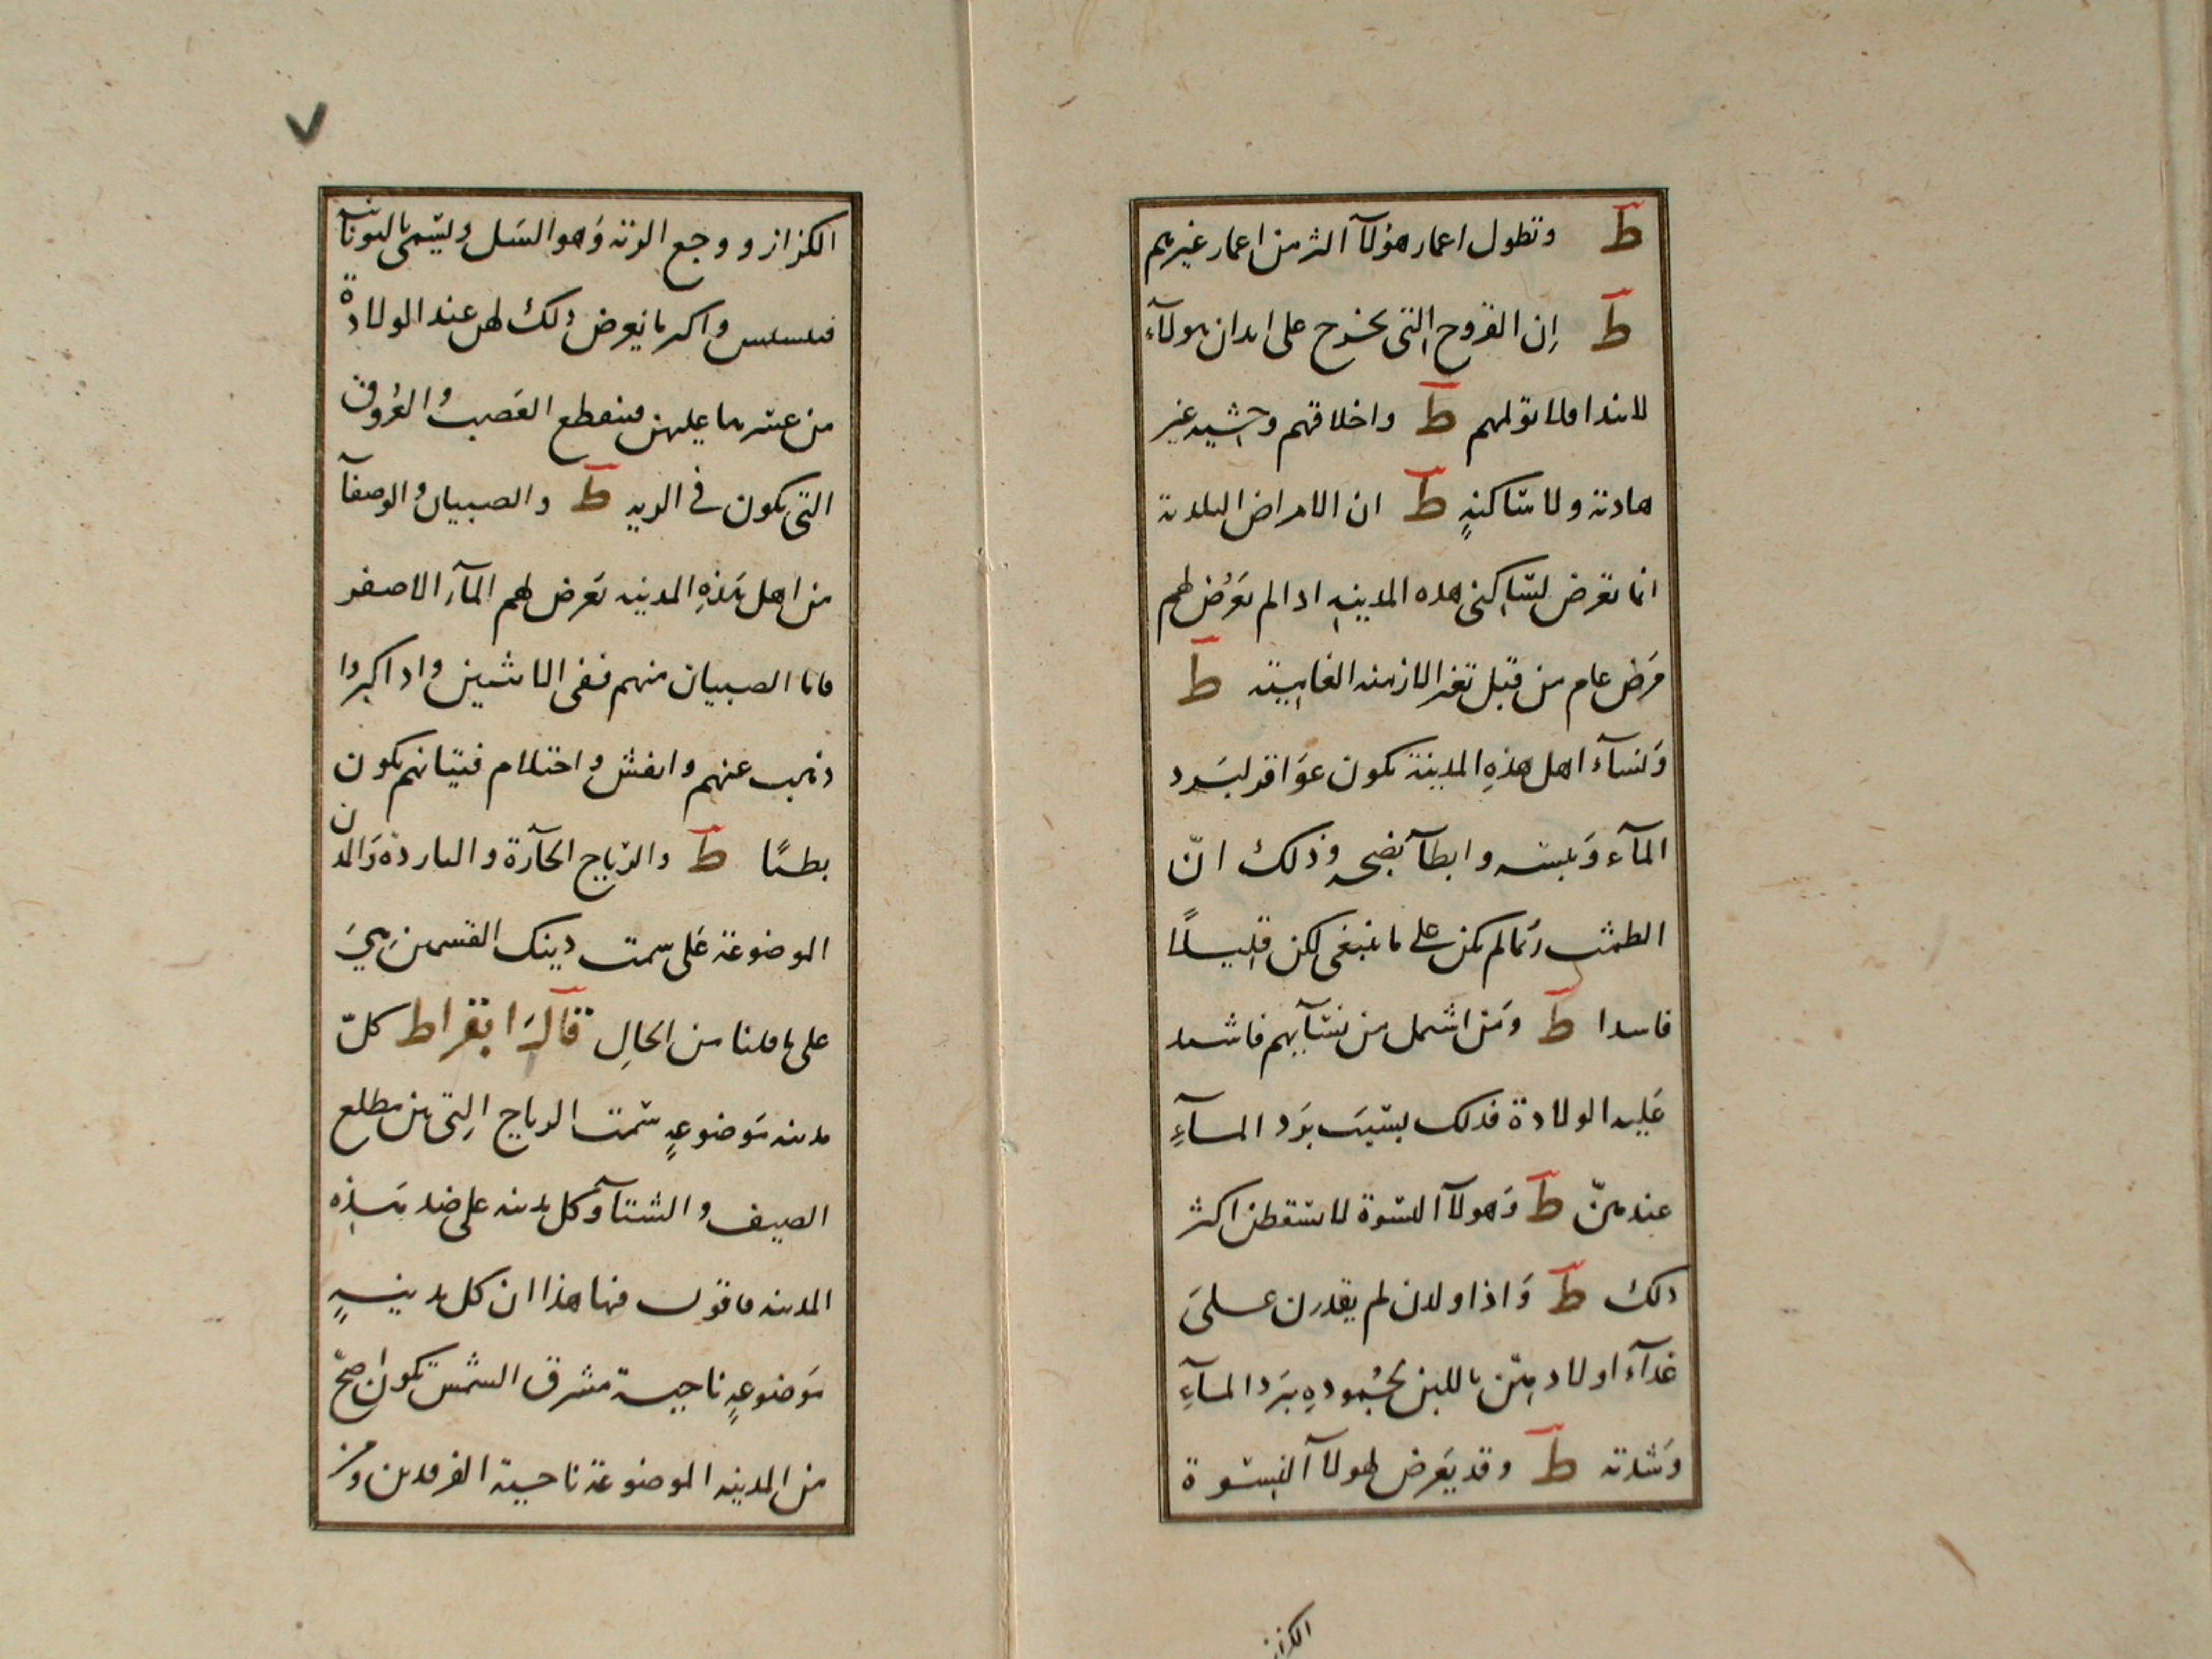 ط وتطول اعمار هؤلآ اكثر من اعمار غيرهم
ط اِن القروح التى تخرج على ابدان هولآء
لا تندا ولا تولمهم ط واخلاقهم وحشيه غير
هادئة ولا ساكنةٍ ط ان الامراض البلدية
انما تعرض لساكنى هذه المدينه اذا لم يَعرُض لهم
مَرض عام من قبل تغير الازمنه الغاببية ط
وَنسآء اهل هذهِ المدينة تكون عوَاقر لبَرد
المآء وَيبسه وابطآ نضجه وذلك انّ
الطمث ربما لم يكن على ما ينبغى لكن قليلاً
فاسدا ط ومَن اشتمل من نسآيهم فاشتد
عَليه الولادة فذلك بسَبَب بَرد المآءِ
عندهنّ ط وَهولآ النسوة لا يسقطن اكثر
ذلك ط وَاذا ولدن لم يقدرن علىَ
غذآء اولادهنّ باللبن لجُمودهِ ببَرد المآءِ
وَشدته ط وقد يَعرض لهولآ النسوة
الكزاز
٧
الكزاز ووجع الرئه وَهو السَل ويسمى باليونانيه
فىسىس واكثر ما يعرض ذلك لهن عند الولادة
من عسرها عليهن فينقطع العَصب والعُروق
التى تكون فى الريه ط والصبيان والوصفآ
من اهل هَذهِ المدينه يَعرض لهم المآء الاصفر
فاما الصبيان منهم ففى الانثيين واذا كبروا
ذهب عنهم وانفش واحتلام فتيانهم يكون
بطئًا ط والرياح الحآرة والباردة وَالمدن
الموضوعة عَلى سمت ذينك القسمين هيَ
على ما قلنا من الحَالِ قآلَ ابقراط كلّ
مدينه مَوضوعةٍ سَمت الرياح التى من مطلع
الصيف والشتآ وَكل مدينه على ضد هَذِه
المدينه فاقول فيها هذا ان كل مدينةٍ
مَوضوعةٍ ناحية مشرق الشمس تكون اصحّ
من المدينه الموضوعة ناحية الفرقدين ومن